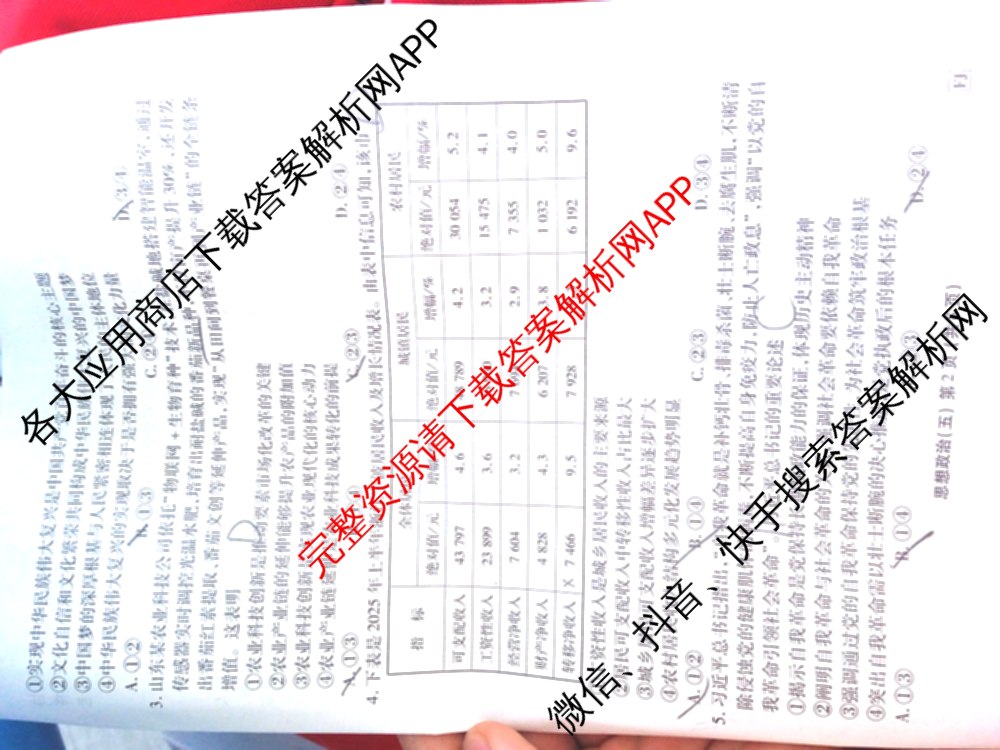 ①实现中华民族伟大复兴是中国共产党
奋斗的核心主题
②文化自信和文化繁荣共同构成中华民族
复兴的中国梦
③中国梦的深厚根基与人民紧密相连体现了
主体地位
④中华民族伟大复兴的实现取决于是否拥有强
A.①② B.①③ C.② D.③④
3.山东某农业科技公司依托“物联网+生物育种”技术
碱地搭建智能温室,通过
传感器实时调控光温水肥,培育出耐盐碱的番茄新品种
产提升30%,还开发
出番茄红素提取、番茄文创等延伸产品,实现“从田间到
产业链”的全链条
增值。这表明
①农业科技创新是推动要素市场化改革的关键
②农业产业链的延伸能够提升农产品的附加值
③农业科技创新是农业现代化的核心动力
④农业产业链延
科技成果转化的前提
A.①③ C.②③ D.②④
4.下表是2025年上半年
居民收入及增长情况表。由表中信息可知,该市
指 标 全体 城镇居民 农村居民
绝对值/元 增 绝对值/元 增幅/% 绝对值/元 增幅/%
可支配收入 43 797 4.6 789 4.2 30 054 5.2
工资性收入 23 899 3.6 3.2 15 475 4.1
经营净收入 7 604 3.2 2.9 7 355 4.0
财产净收入 4 828 4.3 6 20 3.8 1 032 5.0
转移净收入 7 466 9.5 7 928 6 192 9.6
资性收入是城乡居民收入的主要来源
居民可支配收入中转移性收入占比最大
③城乡
可支配收入增幅差异逐步扩大
④农村居
结构多元化发展趋势明显
A.①② B.①④ C.②③ D.③④
5.习近平总书记指出,
革命就是补钙壮骨、排毒杀菌、壮士断腕、去腐生肌,不断清
除侵蚀党的健康肌体
,不断提高自身免疫力,防止人亡政息”,强调“以党的自
我革命引领社会革命”
总书记的重要论述
①揭示自我革命是党保持
能力的保证,体现历史主动精神
②阐明自我革命与社会革命的
强调社会革命要依赖自我革命
③强调通过党的自我革命保持党的
力社会革命筑牢政治根基
④突出自我革命需以壮士断腕的决心
党执政后的根本任务
A.①③ B.①④ D.②④
思想政治(五) 第2页
FJ
各大应用商店下载答案解析网APP
完整资源请下载答案解析网APP
微信、抖音、快手搜索答案解析网